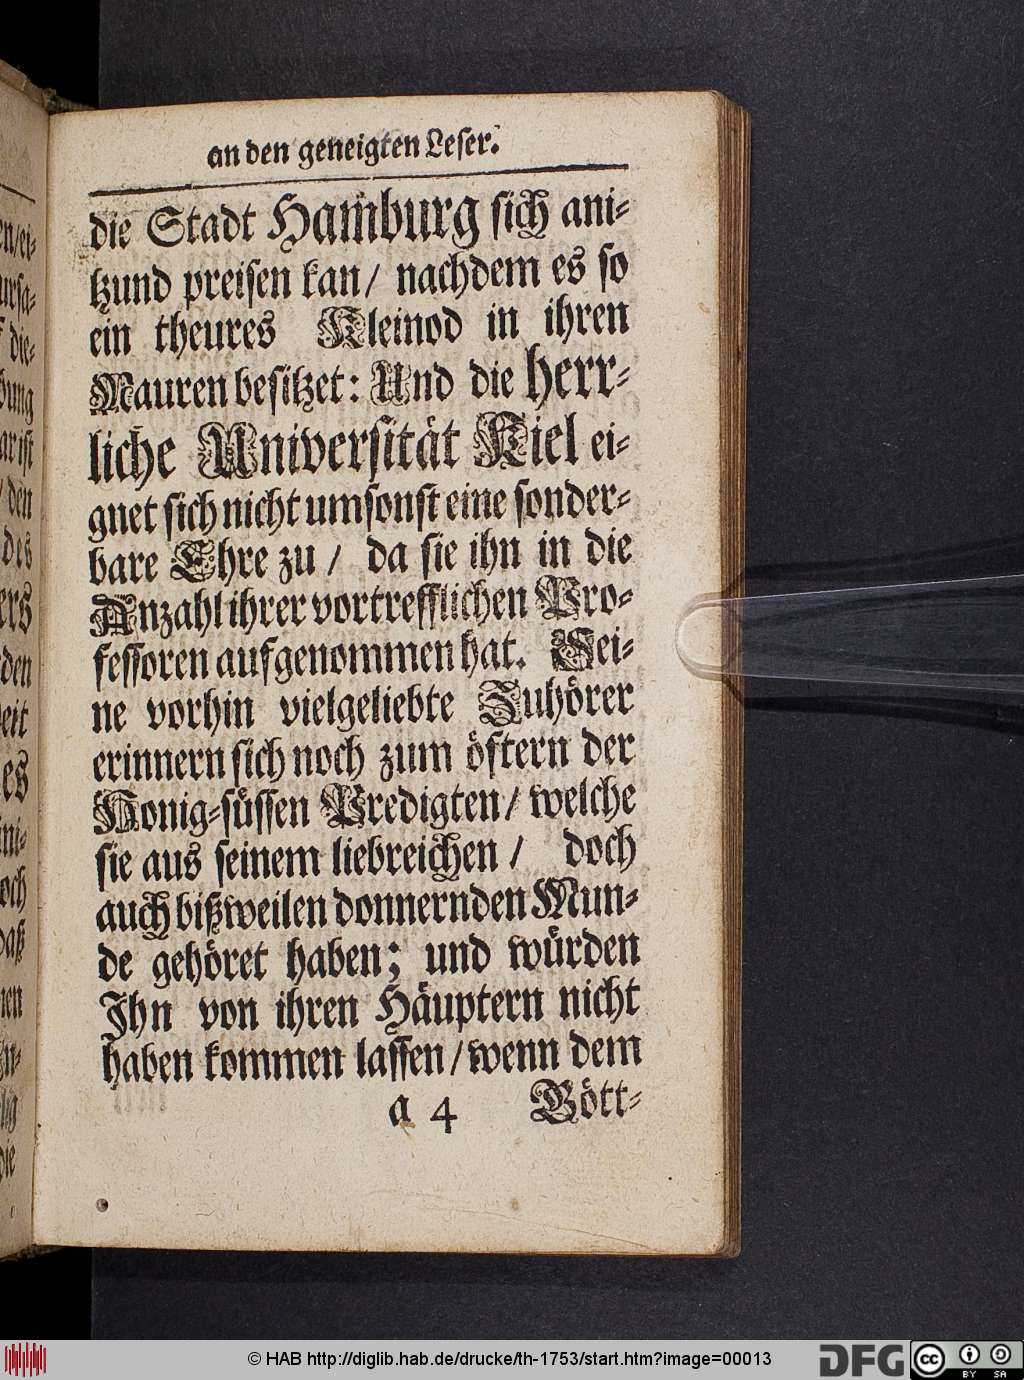 an den geneigten Leser.
die Stadt Hamburg sich ani-
tzund preisen kan / nachdem es so
ein theures Kleinod in ihren
Mauren besitzet: Und die herr-
liche Universität Kiel ei-
gnet sich nicht umsonst eine sonder-
bare Ehre zu / da sie ihn in die
Anzahl ihrer vortrefflichen Pro-
fessoren aufgenommen hat. Sei-
ne vorhin vielgeliebte Zuhörer
erinnern sich noch zum öftern der
Honig-süssen Predigten / welche
sie aus seinem liebreichen / doch
auch bißweilen donnernden Mun-
de gehöret haben; und würden
Ihn von ihren Häuptern nicht
haben kommen lassen / wenn dem
a 4 Gött-
© HAB http://diglib.hab.de/drucke/th-1753/start.htm?image=00013
DFG
cc BY SA